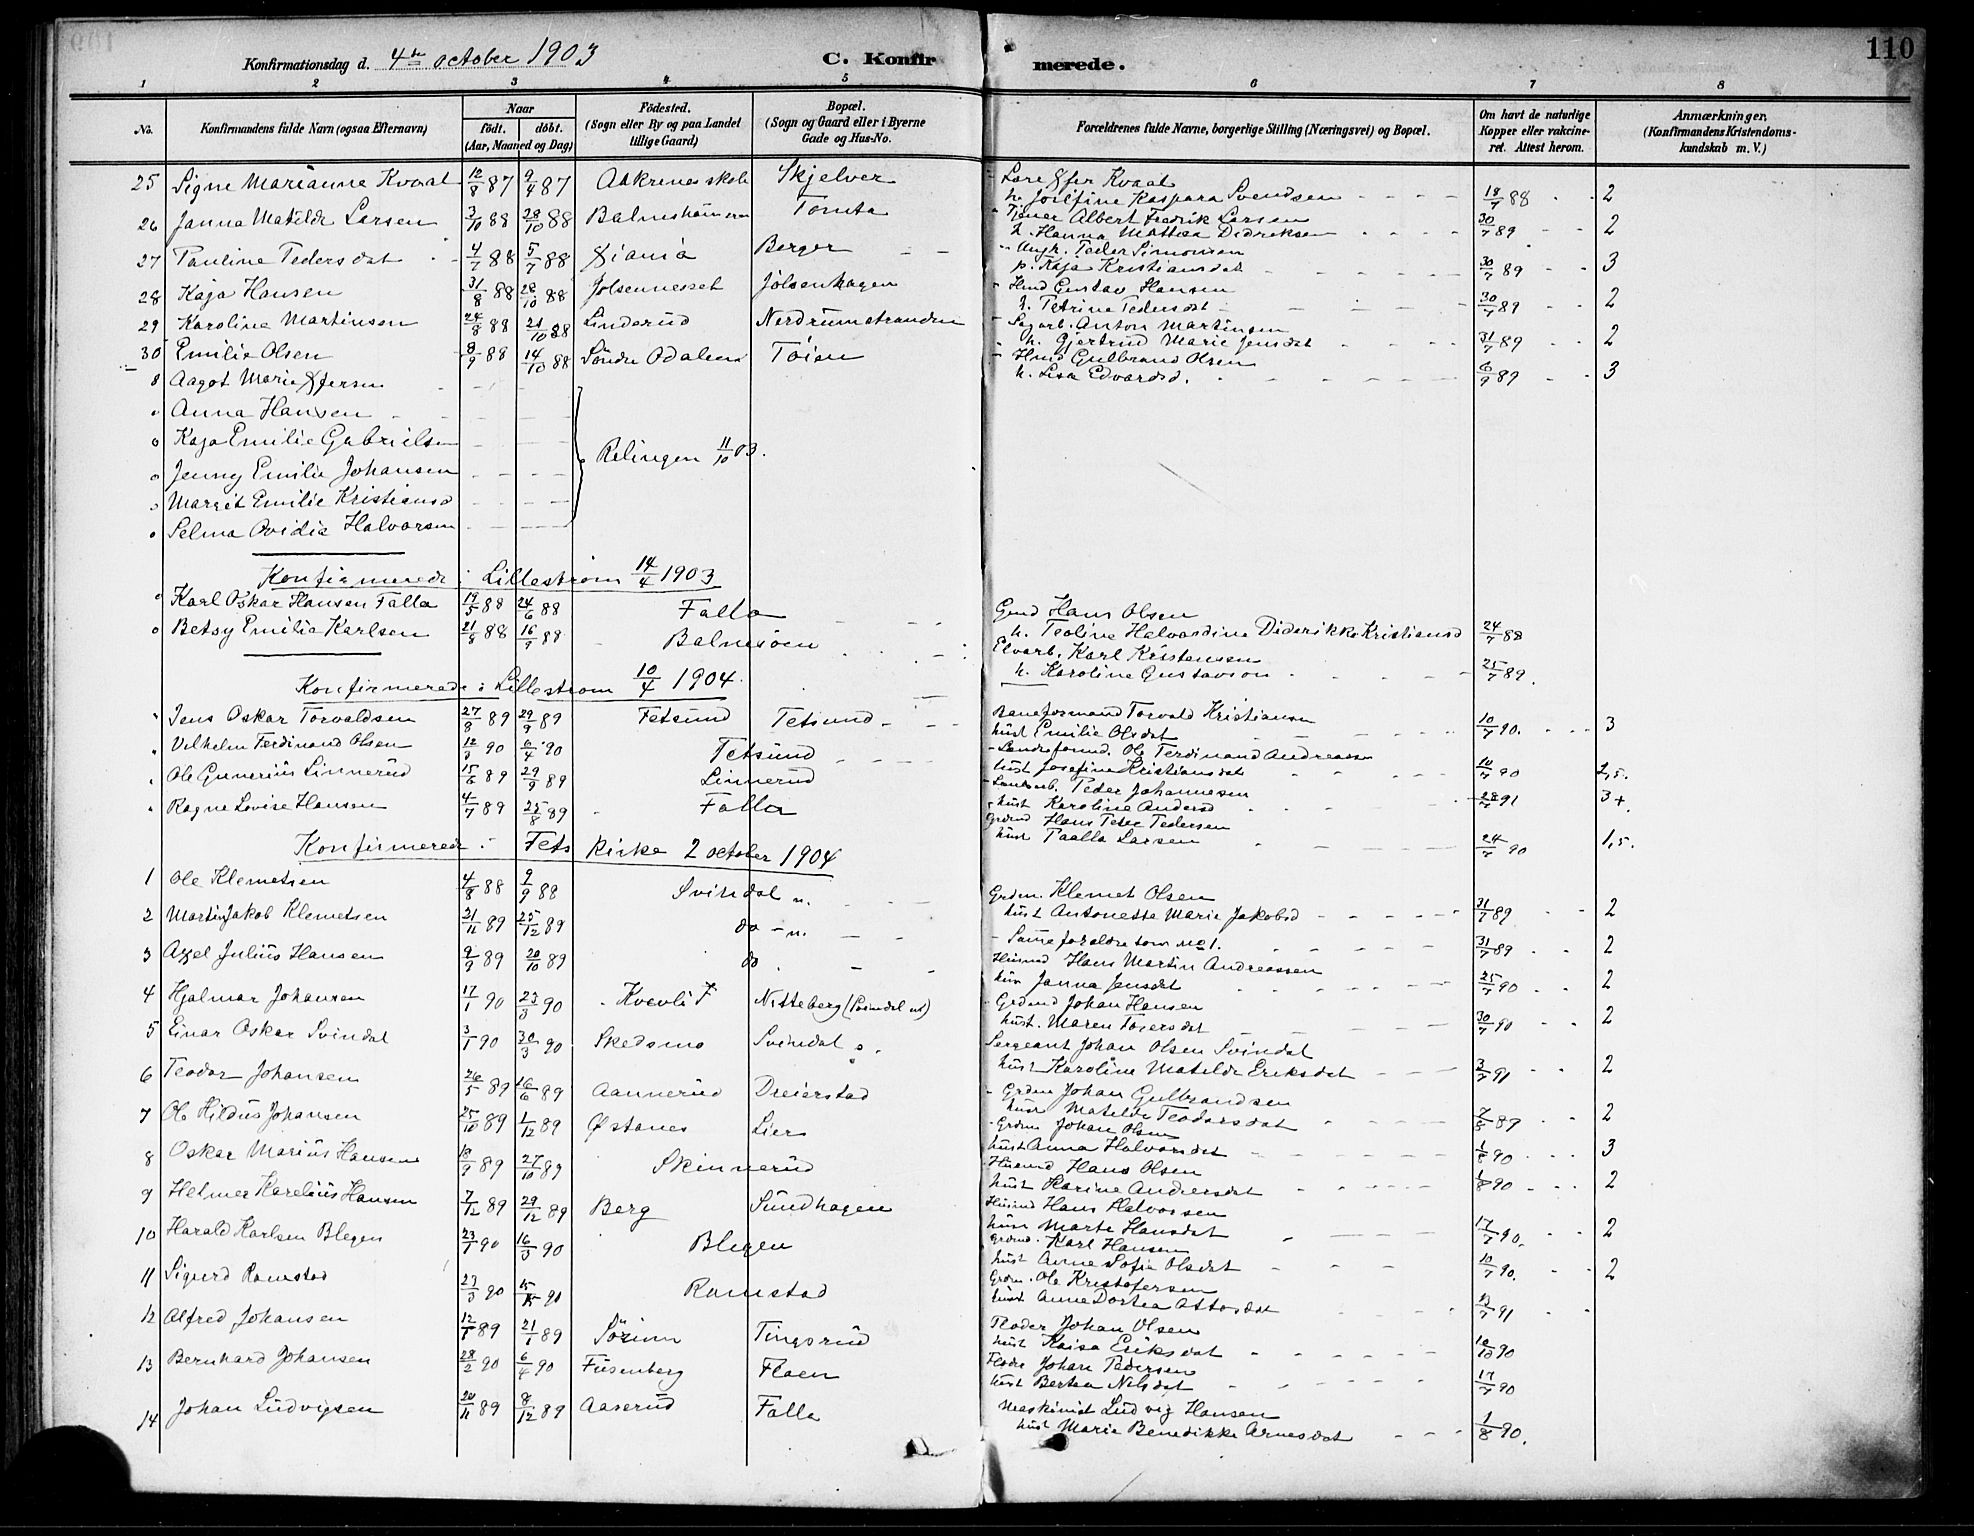 110
Konfirmationsdag d. 4de october 1903 C. Konfirmerede.
1 2 3 4 5 6 7 8
No. Konfirmandens fulde Navn (ogsaa Efternavn) Naar født. døbt. (Aar, Maaned og Dag) Fødested. (Sogn eller By og paa Landet tillige Gaard) Bopæl. (Sogn og Gaard eller i Byerne Gade og Hus-No. Forældrenes fulde Navne, borgerlige Stilling (Næringsvei) og Bopæl. Om havt de naturlige Kopper eller vakcineret. Attest herom. Anmærkninger. (Konfirmandens Kristendomskundskab m. V.)
25 Signe Marianne Kvaal 12/8 87 9/4 87 Aakrenes skole Skjelver Kvaal
h. Josefine Kaspara Svendsen 18/7 88 2
26 Janna Matilde Larsen 3/10 88 28/10 88 Tomta Albert Fredrik Larsen
h. Hanna Mathea Didriksen 30/7 89 2
27 Pauline Pedersdat 4/7 88 5/7 88 Xiania Berger Ungk. Peder Simonsen
p. Kaja Kristiansdat 30/7 89 3
28 Kaja Hansen 31/8 88 28/10 88 Jølsenneset Jølsenhagen Husmd Gustav Hansen
h. Petrine Pedersdat 30/7 89 2
29 Karoline Martinsen 24/8 88 21/10 88 Linderud Nerdrumstranden Sagarb. Anton Martinsen
h. Gjertrud Marie Jensdat 31/7 89 2
30 Emilie Olsen 8/9 88 14/10 88 Søndre Odalen Tøien Husmd Gulbrand Olsen
h. Lisa Edvardsd. 6/9 89 3
8 Aagot Marie
" Anna Hansen
o Kaja Emilie Gabrielsen
o Jenny Emilie Johansen Relingen 11/10 03.
o Margit Emilie Kristiansd
o Selma Ovidia Halvorsen
Konfirmerede i Lillestrøm 14/4 1903
o Karl Oskar Hansen Falla 19/5 88 24/6 88 Falla Grmd Hans Olsen
h. Teoline Halvardine Diderikke Kristiansd 24/7 88
o Betsy Emilie Karlsen 21/8 88 16/9 88 Balnesøen Elvarb. Karl Kristensen
h. Karoline Gustavson 25/7 89.
Konfirmerede i Lillestrøm 10/4 1904.
" Jens Oskar Torvaldsen 27/8 89 29/9 89 Fetsund Fetsund Baneformand Torvald Kristiansen
hust Emilie Olsdat 10/7 90. 3
" Vilhelm Ferdinand Olsen 12/3 90 6/4 90 Fetsund Ole Ferdinand Andreassen
hust Josefine Kristiansdat 10/7 90 2,5.
" Ole Gunerius Linnerud 15/6 89 29/9 89 Linnerud Peder Johannesen
hust Karoline Andersd 91 3+.
" Ragne Lovise Hansen 4/7 89 25/8 89 Falla Grdmd Hans Peter Pedersen
hust Paalla Larsen 24/7 90 1,5.
Konfirmerede i Fets Kirke 2 october 1904
1 Ole Klemetsen 4/8 88 9/9 88 Svindal n. Grdm. Klemet Olsen
hust Antonette Marie Jakobsd 31/7 89 2
2 Martin Jakob Klemetsen 21/11 89 25/12 89 do - n. Same foraldre som No 1. 31/7 89 2
3 Axel Julius Hansen 9/9 89 20/10 89 do Husmd Hans Martin Andreassen
hust Janna Jensdat 25/7 90 2
4 Hjalmar Johansen 17/1 90 23/3 90 Kvevli F Nitteberg (Svindal n) Grdmd Johan Hansen
hust. Maren Toersdat 30/7 90 2
5 Einar Oskar Svindal 3/1 90 30/3 90 Skedsmo Svindal s. Sergeant Johan Olsen Svindal
hust Karoline Matilde Eriksdat 3/7 91 2
6 Teodor Johansen 26/5 89 16/6 89 Aannerud Dreierstad Grdm Johan Gulbrandsen
hust Matilde Teodorsdat 89 2
7 Ole Hildus Johansen 25/10 89 1/12 89 Østanes Lier Grdm Johan Olsen
hust Anna Halvorsdat 1/8 90 3
8 Oskar Marius Hansen 18/9 89 27/10 89 Skinnerud Husmd Hans Olsen
hust Karine Andersdat 1/8 90 2
9 Helmer Karelius Hansen 7/12 89 29/12 89 Berg Sundhagen Husmd Hans Halvorsen
hust Marte Hansdat 17/7 90. 2
10 Harald Karlsen Blegen 23/1 90 16/3 90 Blegen Grdmd. Karl Hansen
hust Anne Sofie Olsdat 10/7 90. 2
11 Sigurd Ramstad 23/3 90 90 Ramstad Grdm. Ole Kristofersen
hust Anne Dortea Attosdat 91
12 Alfred Johansen 12/1 89 21/1 89 Sørum Tingsrud Floder Johan Olsen
hust Kaisa Eriksdat 10/10 90
13 Bernhard Johansen 28/2 90 6/4 90 Fusenberg Floen Johan Pedersen
hust Bertea Nilsdat 17/7 90
14 Johan Ludvigsen 20/11 89 8/12 89 Aaserud Falla Maskinist Ludvig Hansen
hust Marie Benedikke Arnesdat 1/8 90.